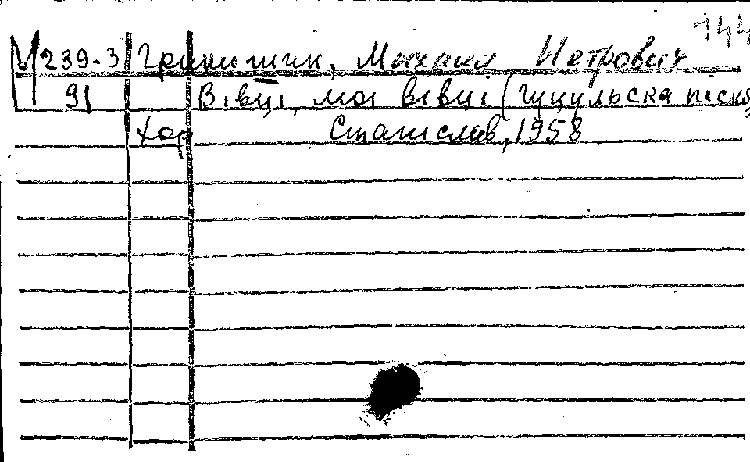 144
М 239-3 Гринишин, Михайло Петрович
91 Вівці, мої вівці (Гуцульська пісня
хор Станіслав, 1958